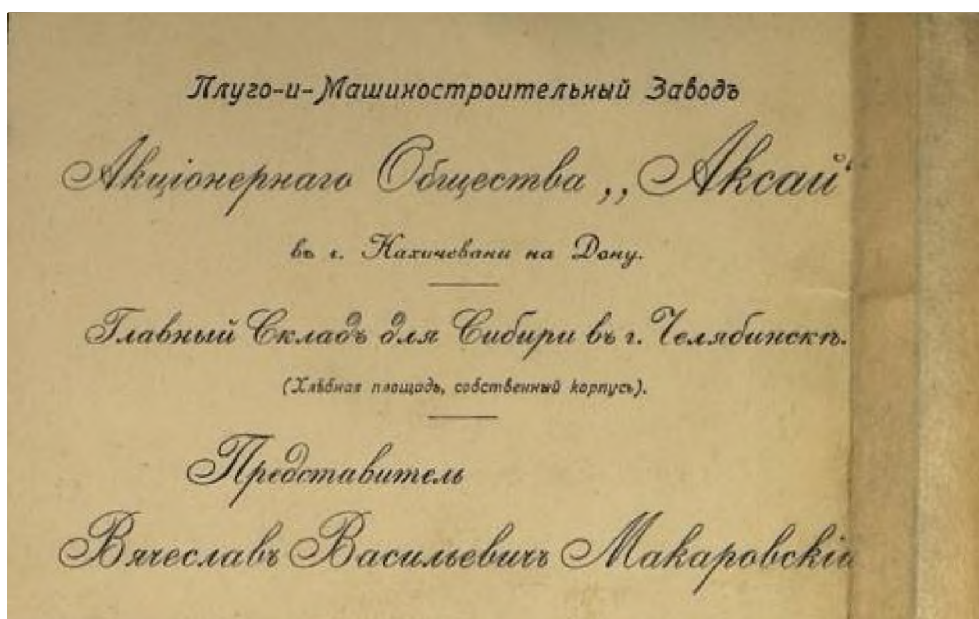 Плуго-и-Машиностроительный Заводъ
Акціонернаго Общества „Аксай“
въ г. Нахичевани на Дону.
Главный Складъ для Сибири въ г. Челябинскѣ.
(Хлѣбная площадь, собственный корпусъ).
Представитель
Вячеславъ Васильевичъ Макаровскій